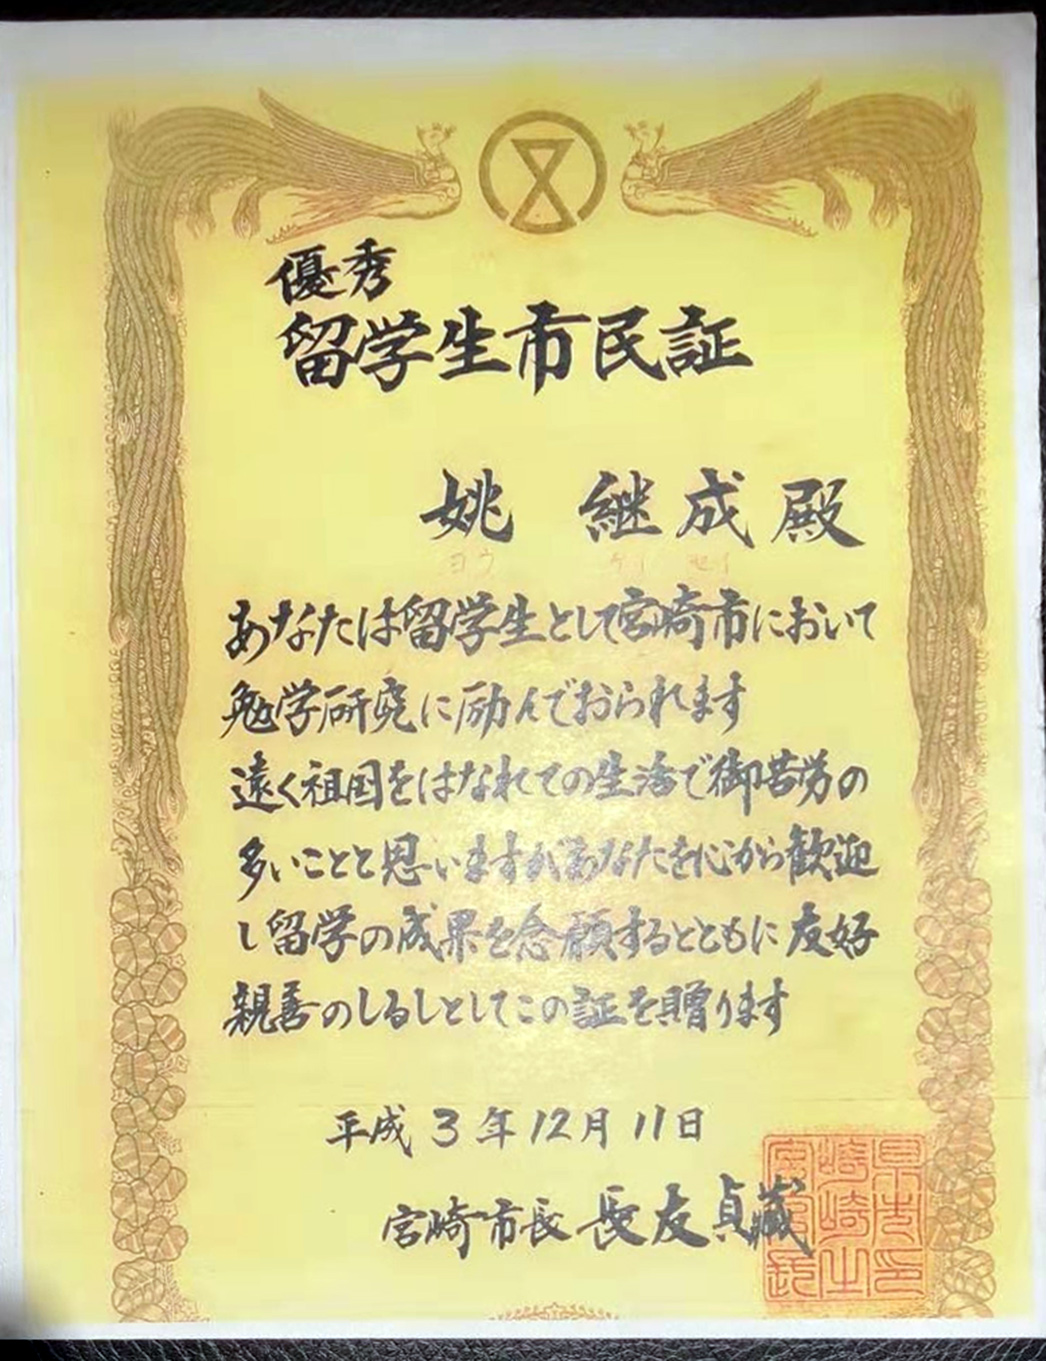 優秀
留学生市民証
姚 継成殿
ヨウ ケイ セイ
あなたは留学生として宮崎市において
勉学研究に励んでおられます
遠く祖国をはなれての生活で御苦労の
多いことと思いますがあなたを心から歓迎
し留学の成果を念願するとともに友好
親善のしるしとしてこの証を贈ります
平成3年12月11日
宮崎市長 長友貞蔵